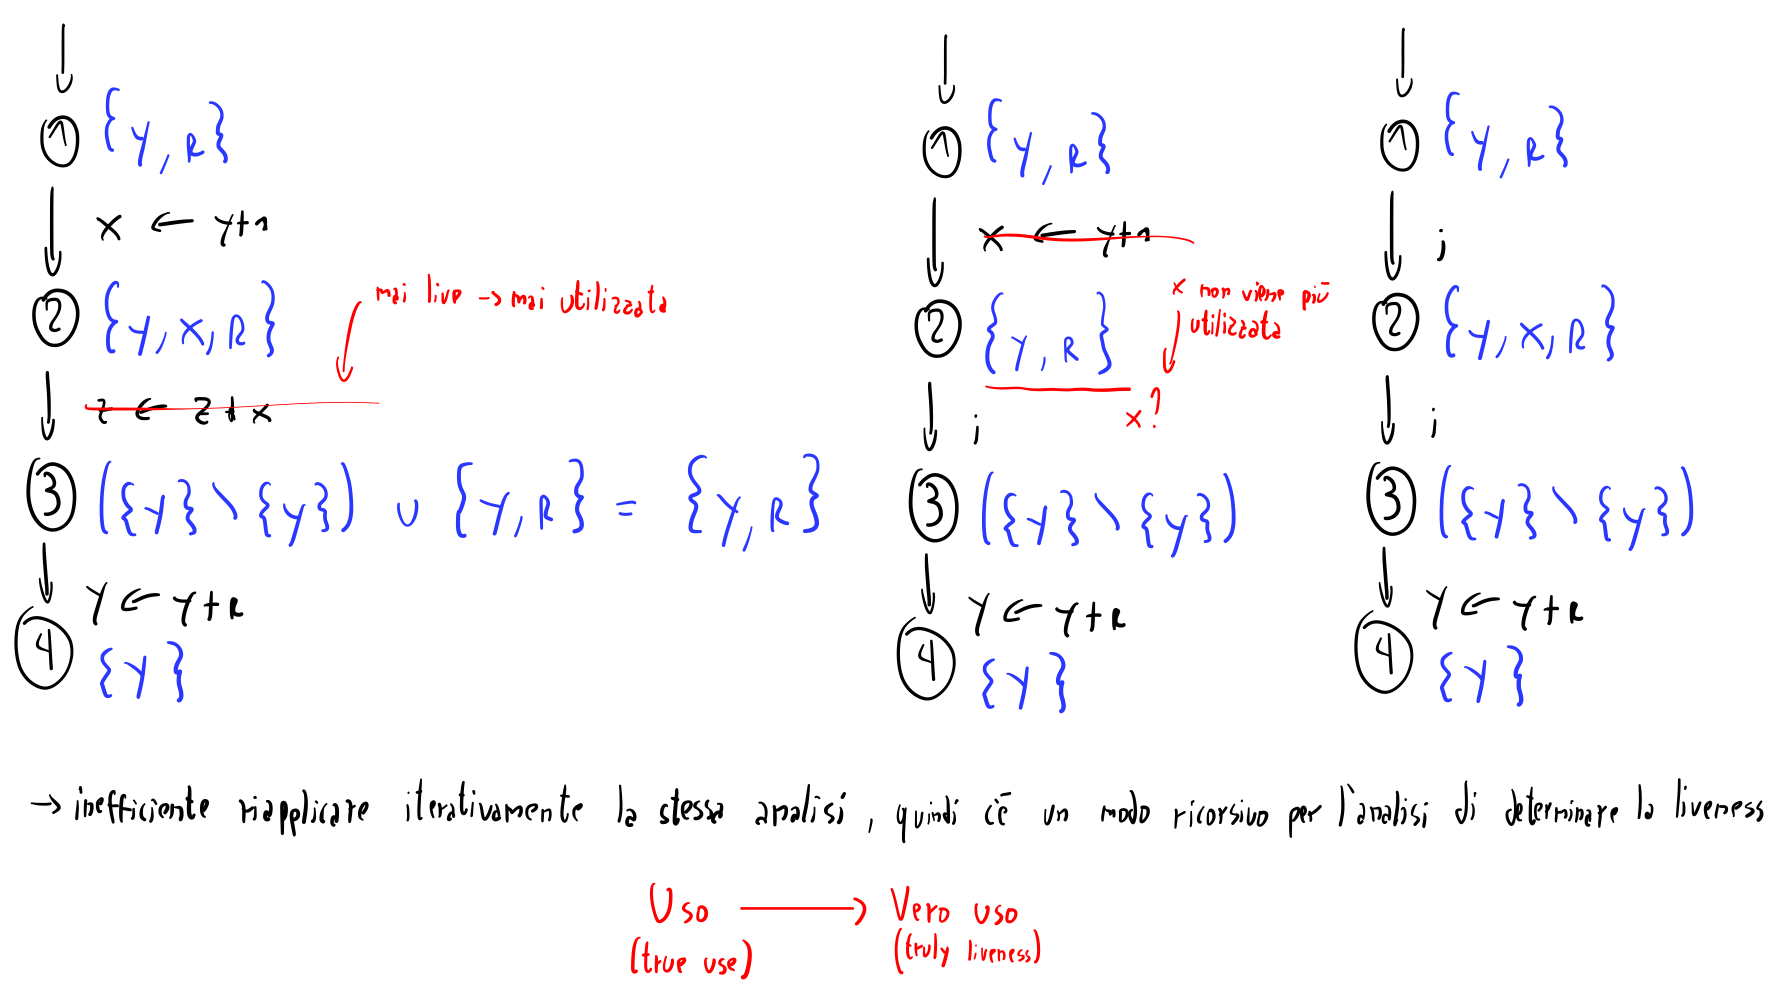 1 {y, R}
x ← y+1
2 {y, x, R}
mai live → mai utilizzata
z ← z + x
3 ({y} \ {y}) ∪ {y, R} = {y, R}
y ← y+R
4 {y}
1 {y, R}
x ← y+1
2 {y, R}
x non viene più
utilizzata
x?
;
3 ({y} \ {y})
y ← y+R
4 {y}
1 {y, R}
;
2 {y, x, R}
;
3 ({y} \ {y})
y ← y+R
4 {y}
→ inefficiente riapplicare iterativamente la stessa analisi, quindi c'è un modo ricorsivo per l'analisi di determinare la liveness
Uso → Vero uso
(true use) (truly liveness)